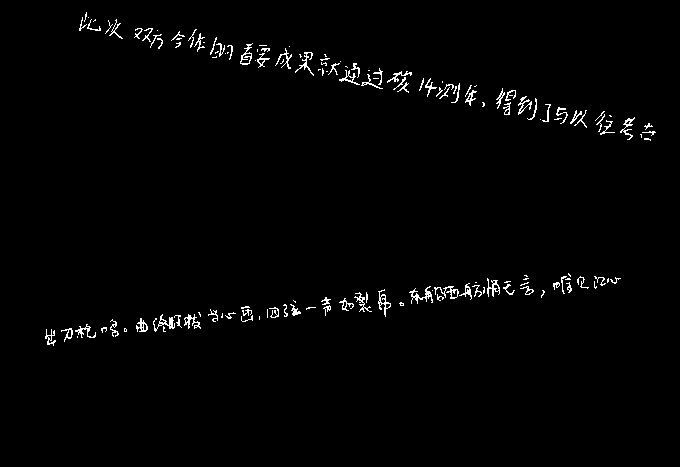 此次双方合作的首要成果就通过碳14测年,得到了与以往考古
出刀枪鸣。曲终收拨当心画,四弦一声如裂帛。东船西舫悄无言,唯见江心